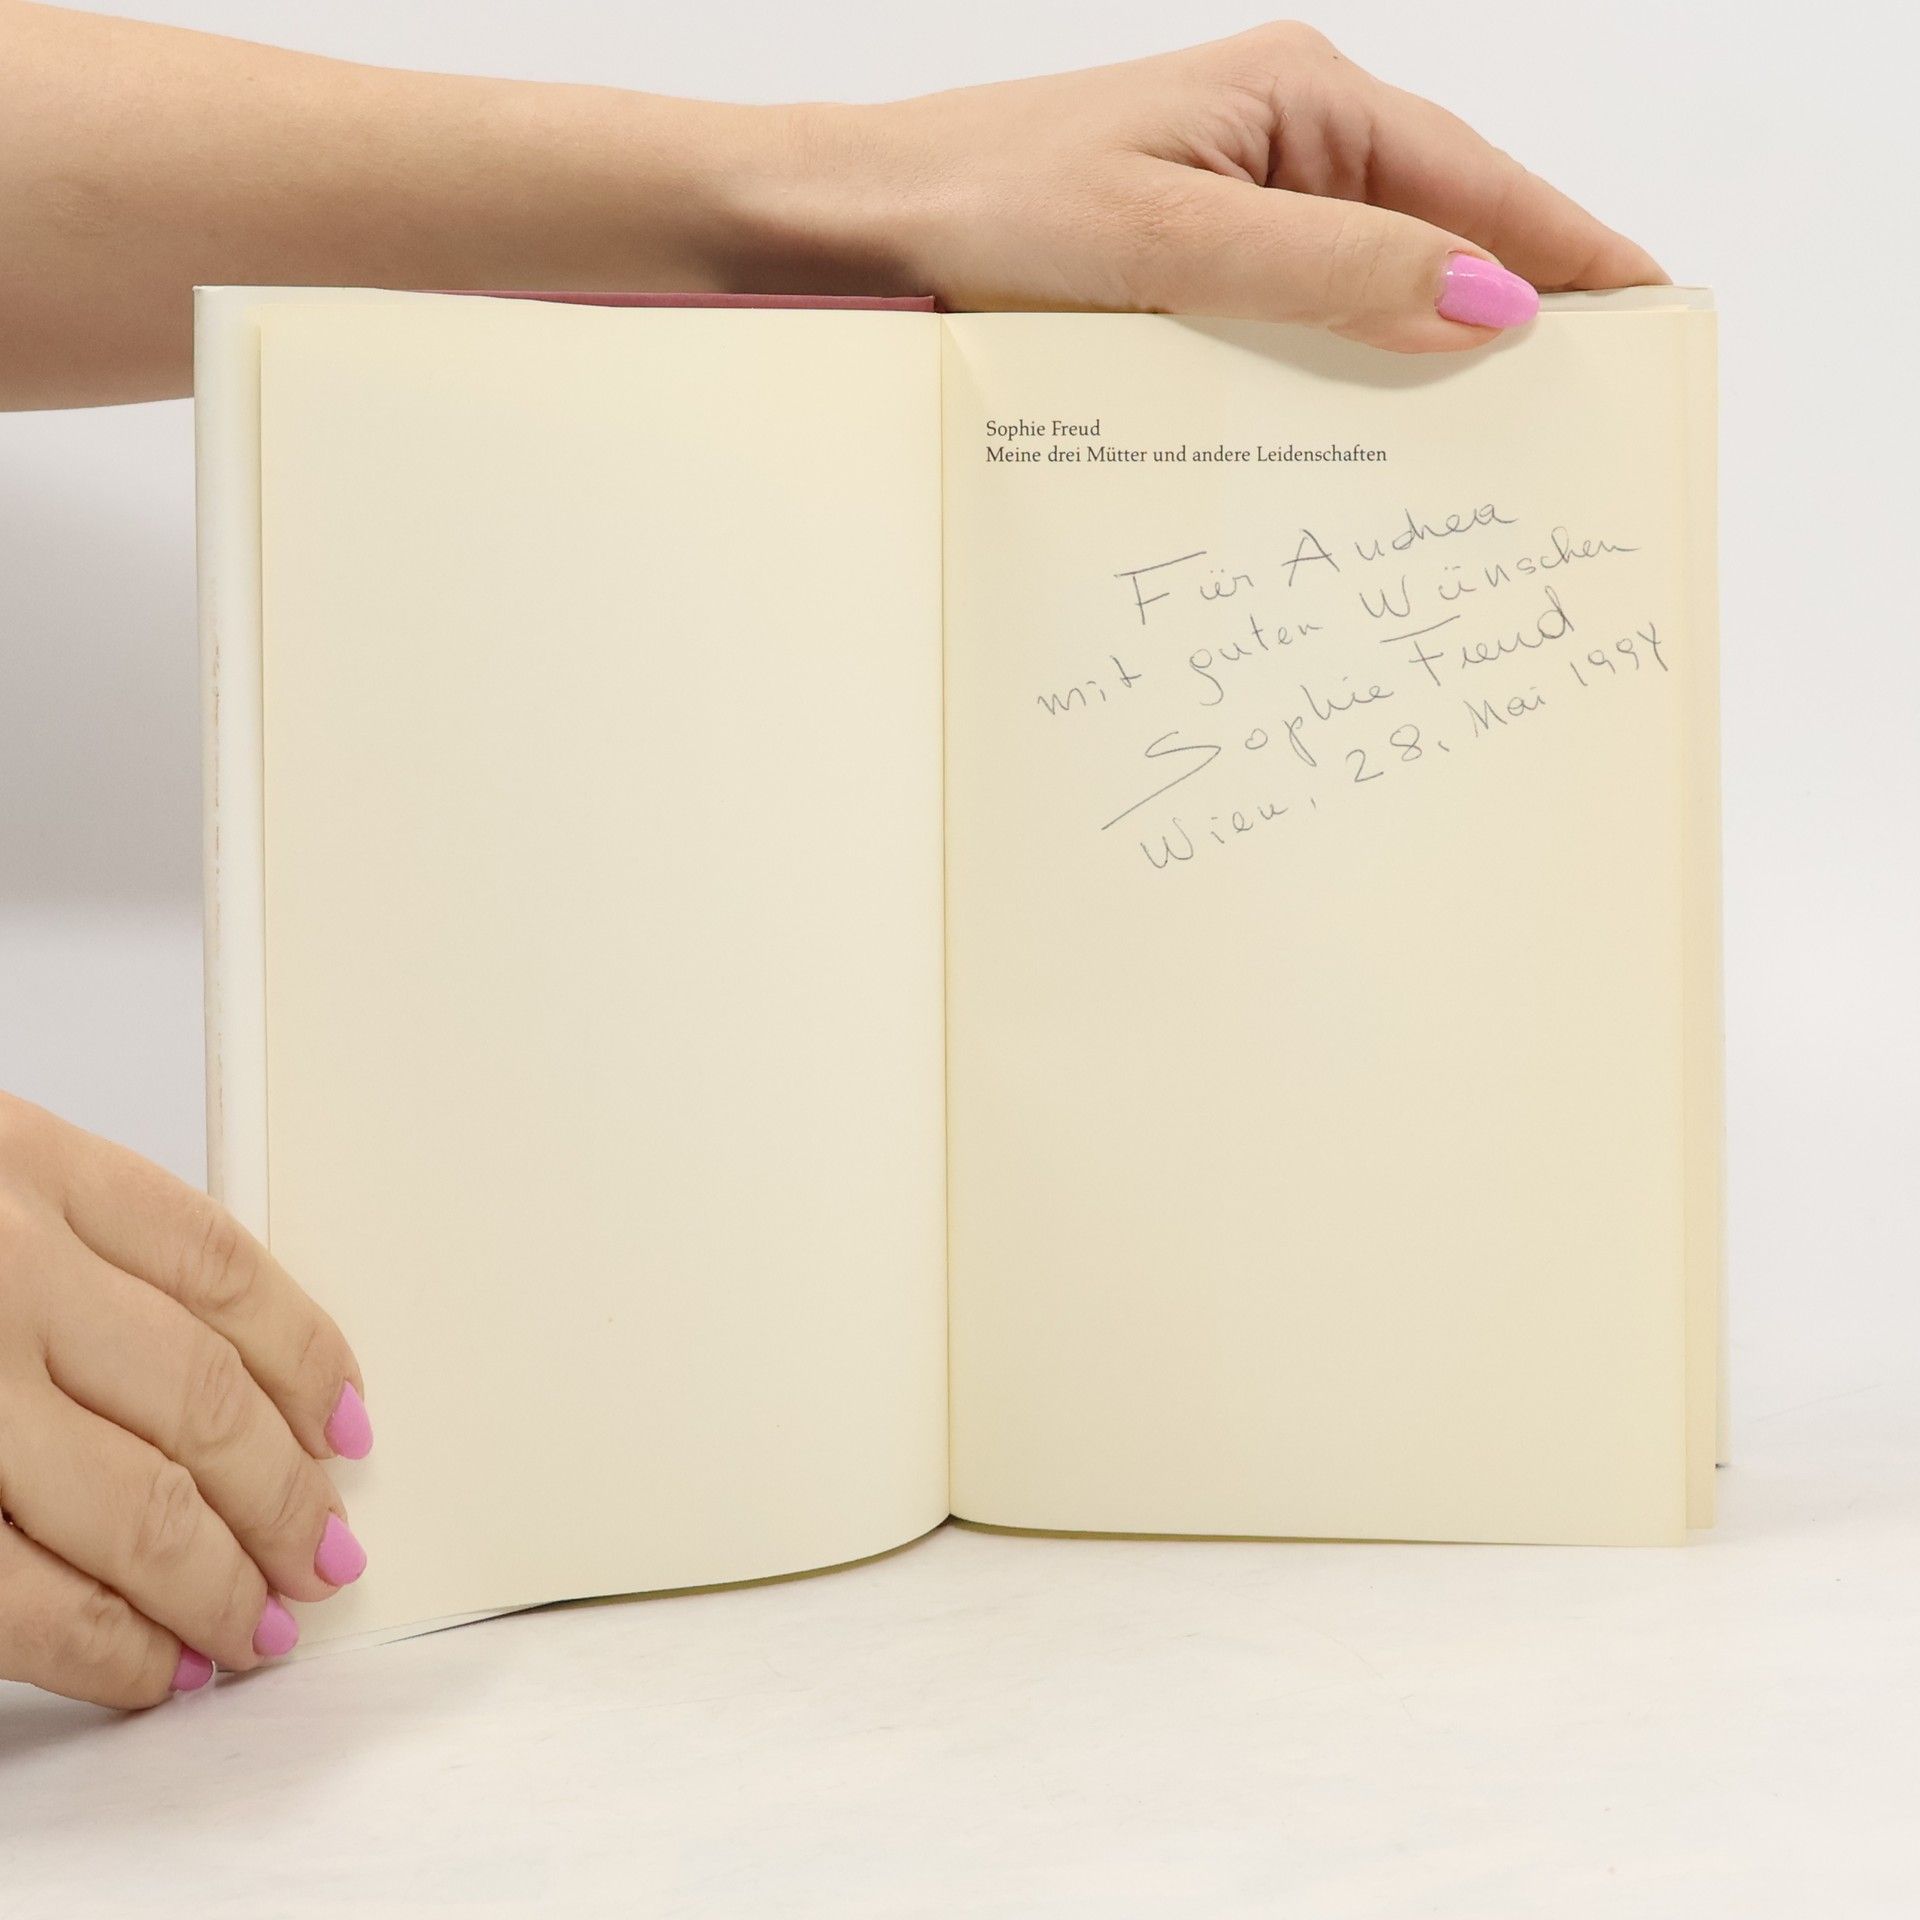 Sophie Freud
Meine drei Mütter und andere Leidenschaften
Für Andrea
mit guten Wünschen
Sophie Freud
Wien, 28. Mai 1994